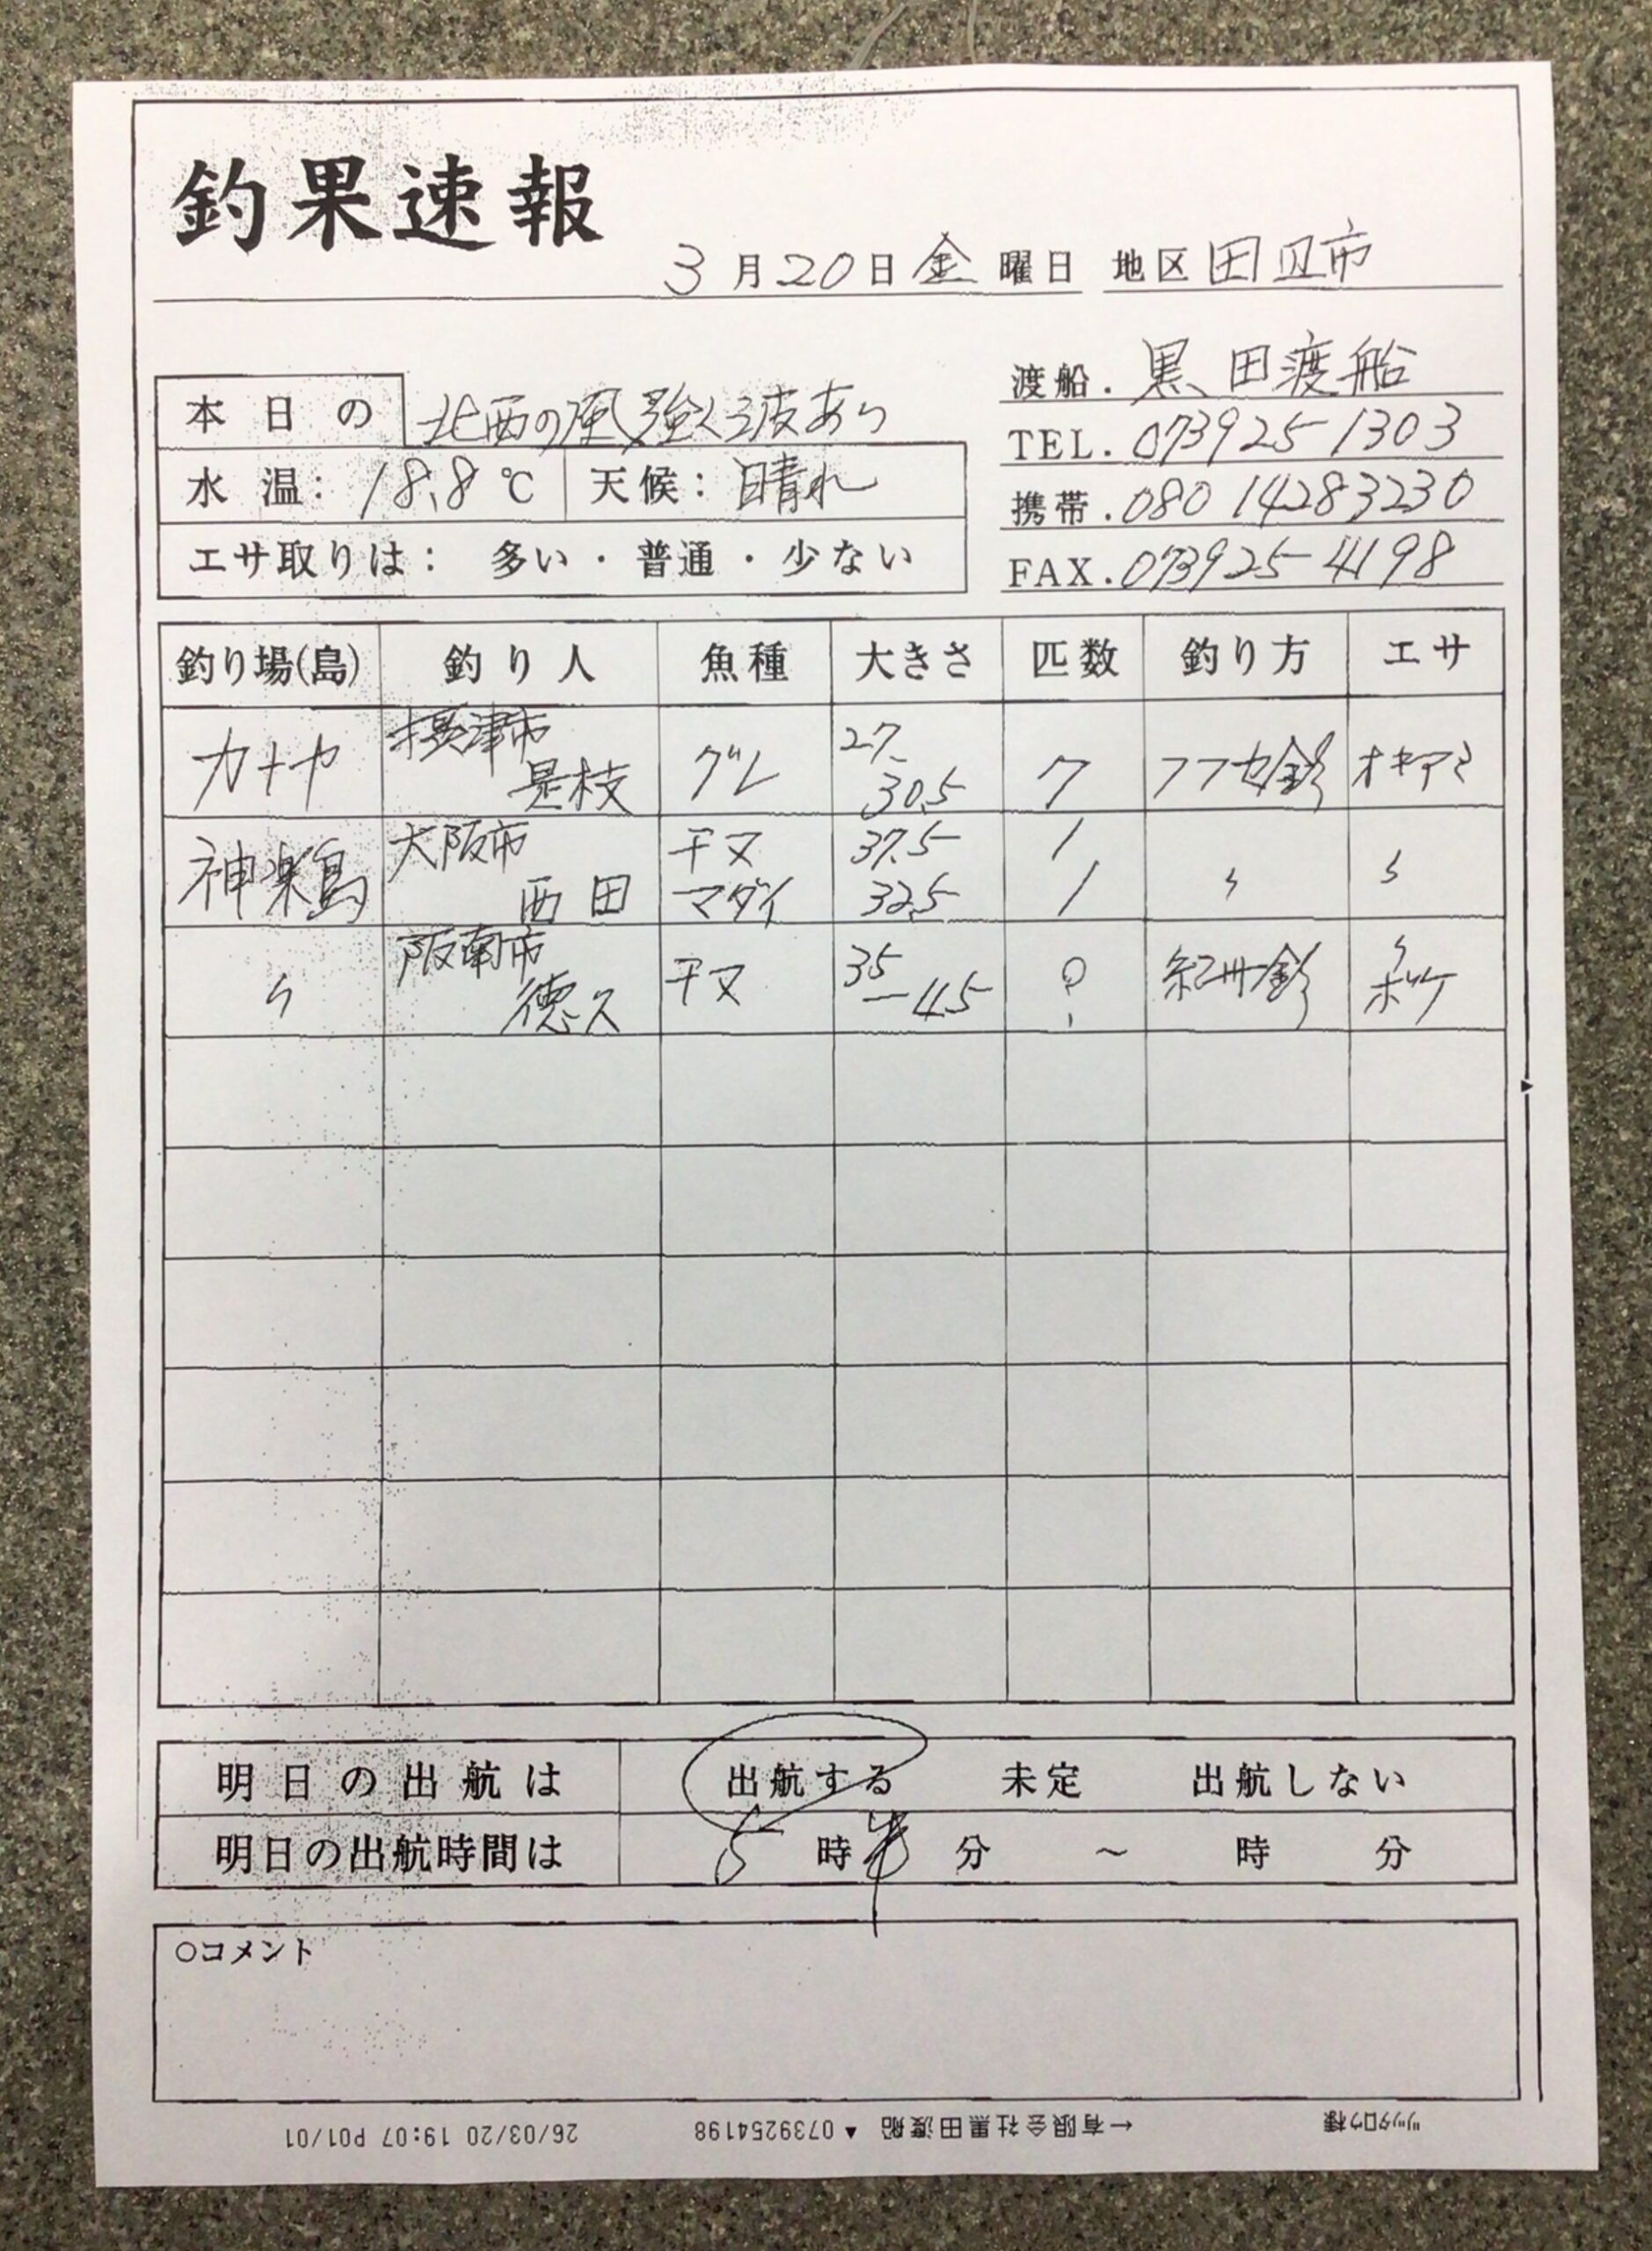 釣果速報
3月20日金曜日 地区田辺市
本日の 北西の風強く波あり
水温: 18.8℃ 天候: 晴れ
エサ取りは: 多い・普通・少ない
渡船. 黒田渡船
TEL. 073925-1303
携帯. 080 14283230
FAX. 073925-4198
釣り場(島) 釣り人 魚種 大きさ 匹数 釣り方 エサ
カトヤ 摂津市 是枝 グレ 27. 30.5 7 フカセ釣 オキアミ
神楽島 大阪市 西田 チヌ 37.5 1 〃 〃
マダイ 32.5 1
〃 阪南市 徳久 チヌ 35-45 ? 紀州釣 〃 ボケ
明日の出航は 出航する 未定 出航しない
明日の出航時間は 5時半分 〜 時 分
○コメント
ツッタロウ様 ←有限会社黒田渡船 ▲ 0739254198 26/03/20 19:07 P01/01